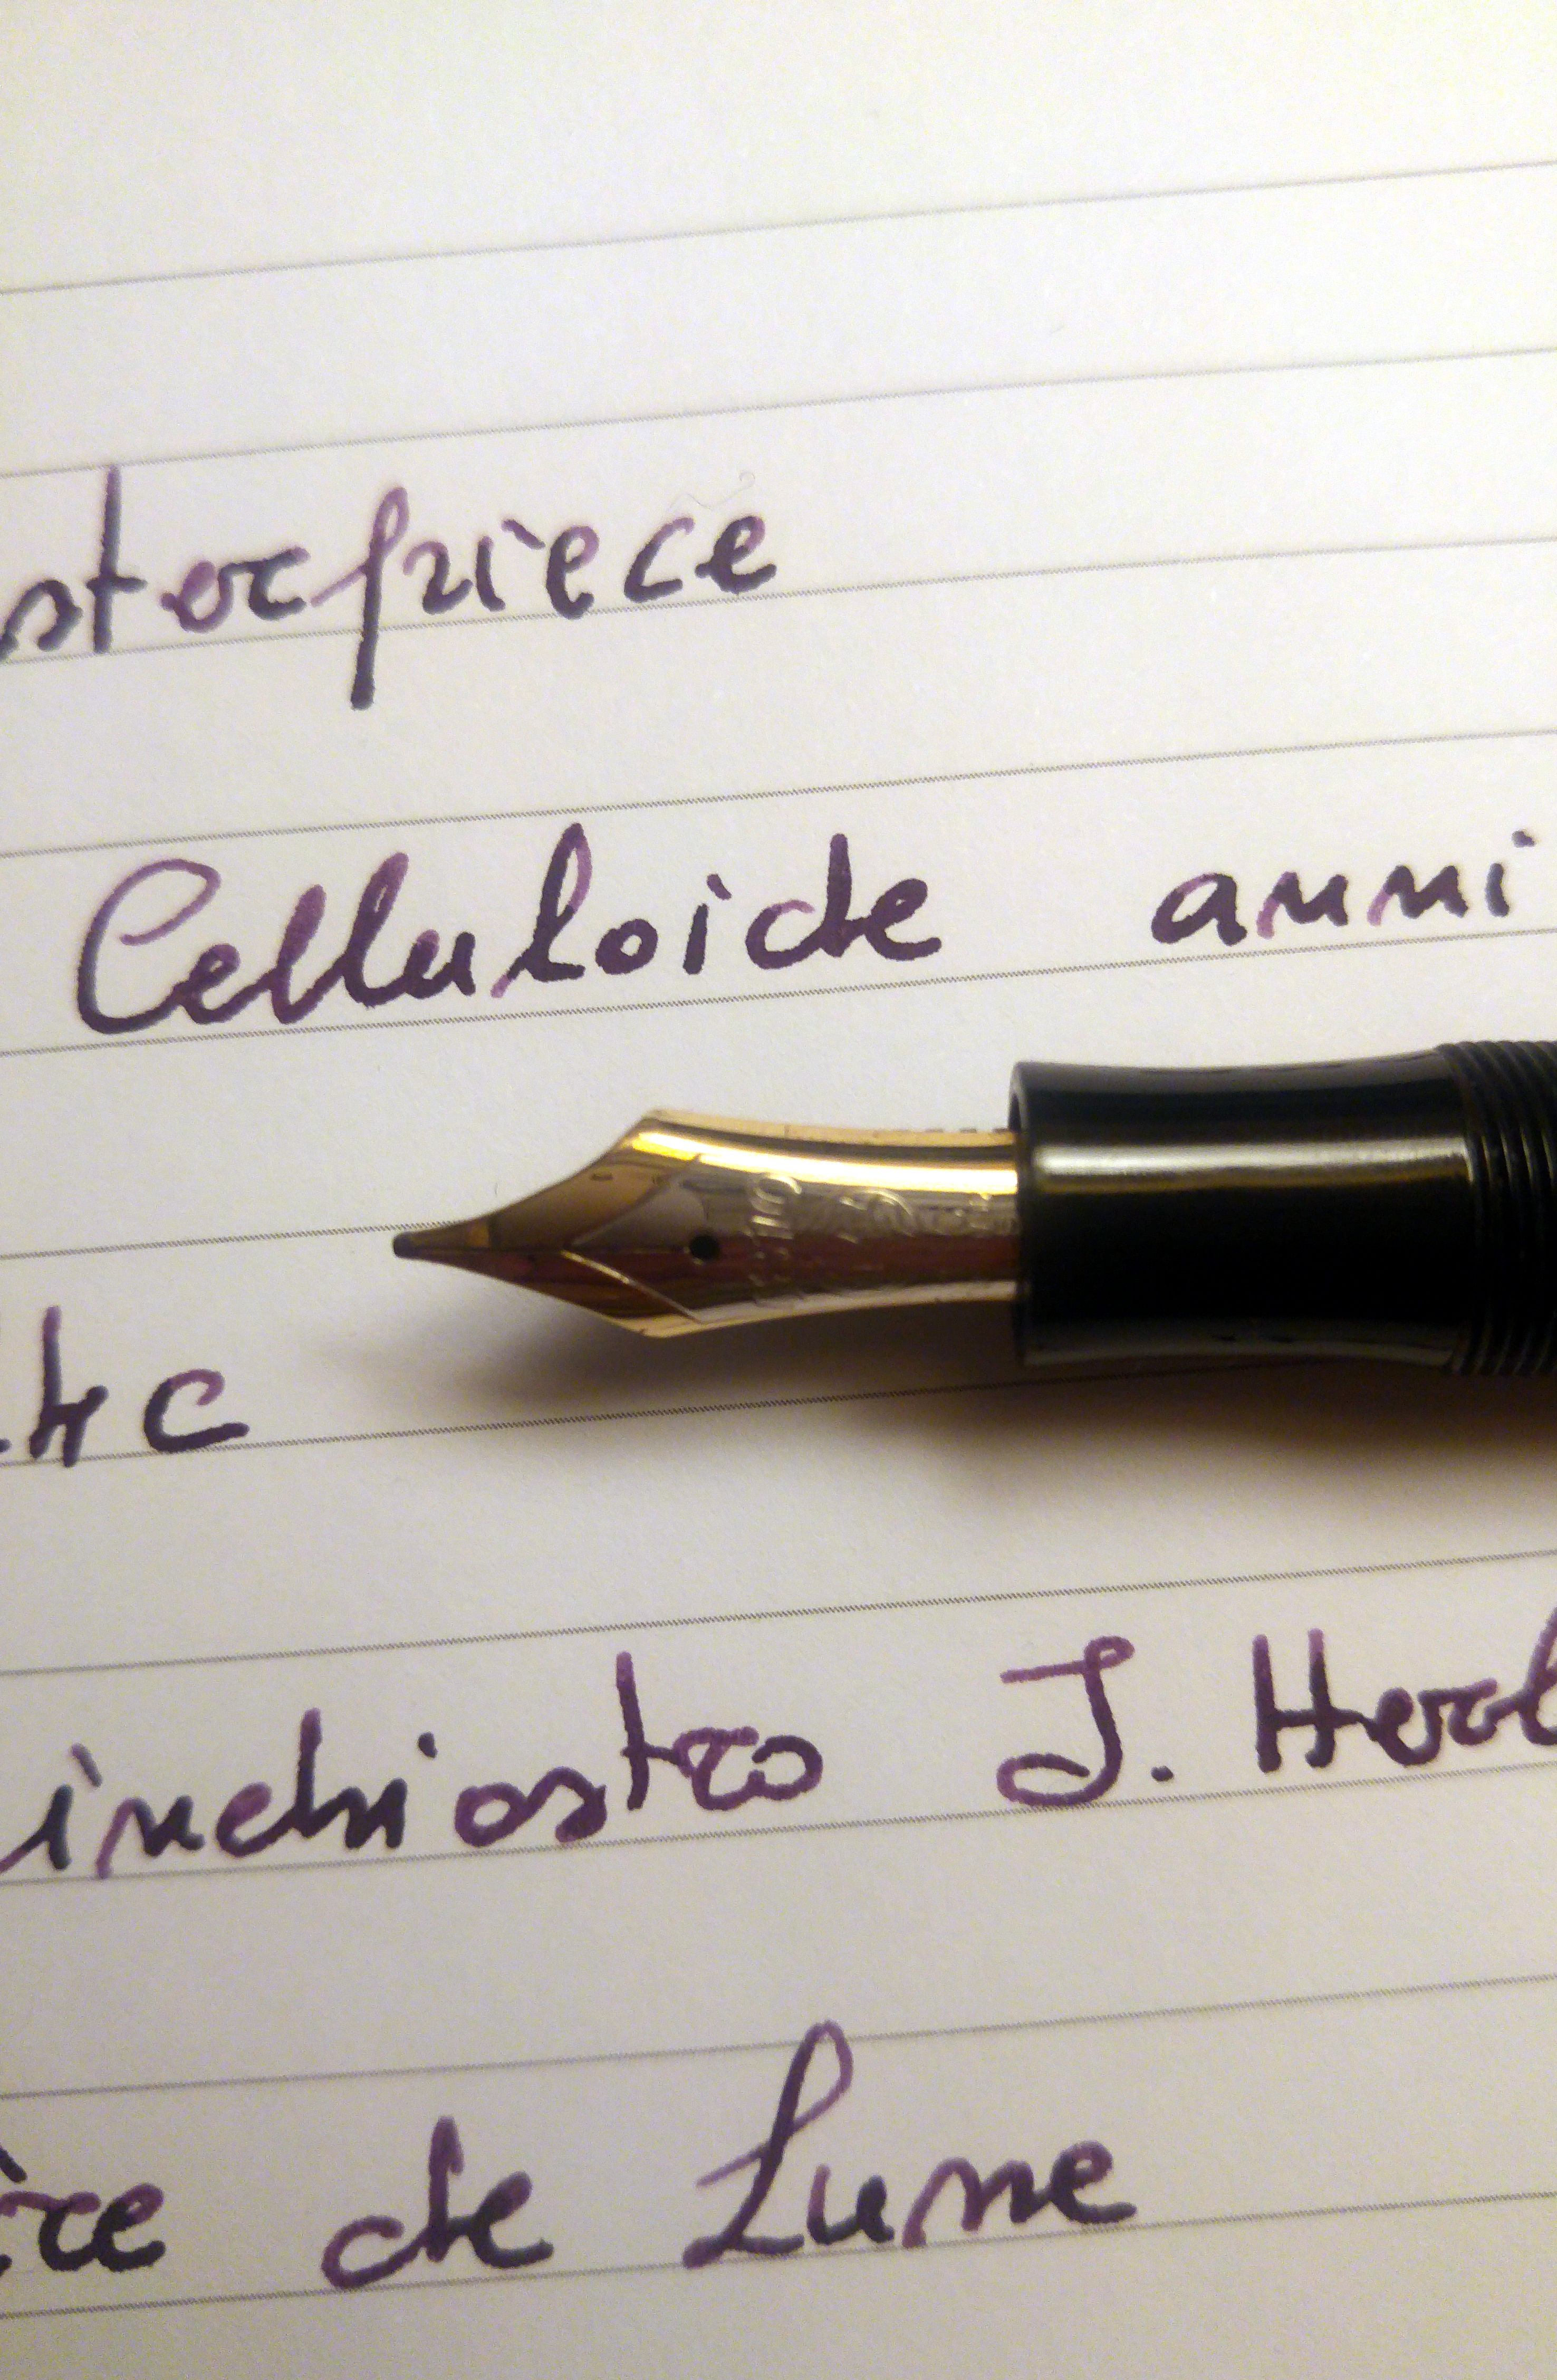 sterpiece
Celluloide anni
14C
inchiostro J. Herb
ère de Lune